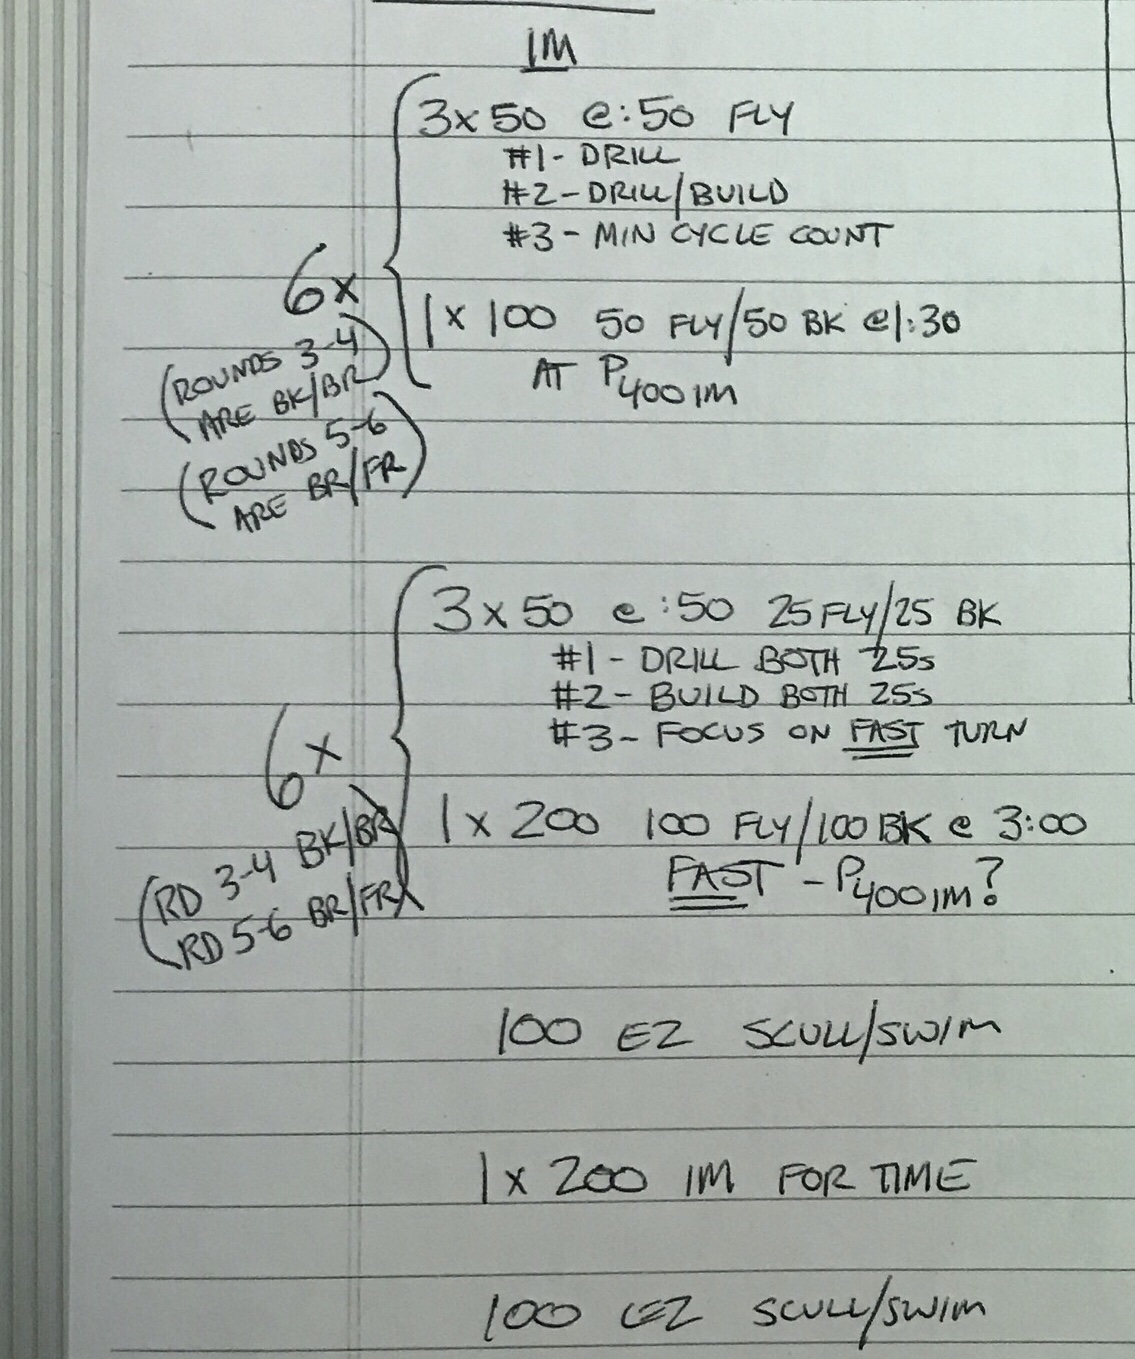 IM
3x50 @:50 FLY
#1- DRILL
#2-DRILL/BUILD
#3-MIN CYCLE COUNT
6x
1x 100 50 FLY/50 BK @1:30
AT P400IM
(ROUNDS 3-4
ARE BK/BR)
(ROUNDS 5-6
ARE BR/FR)
3x50 @ :50 25 FLY/25 BK
#1- DRILL BOTH 25s
#2- BUILD BOTH 25s
#3- FOCUS ON FAST TURN
6x
1 x 200 100 FLY/100 BK @ 3:00
FAST - P400IM?
(RD 3-4 BK/BR
RD 5-6 BR/FR)
100 EZ SCULL/SWIM
1x 200 IM FOR TIME
100 EZ SCULL/SWIM